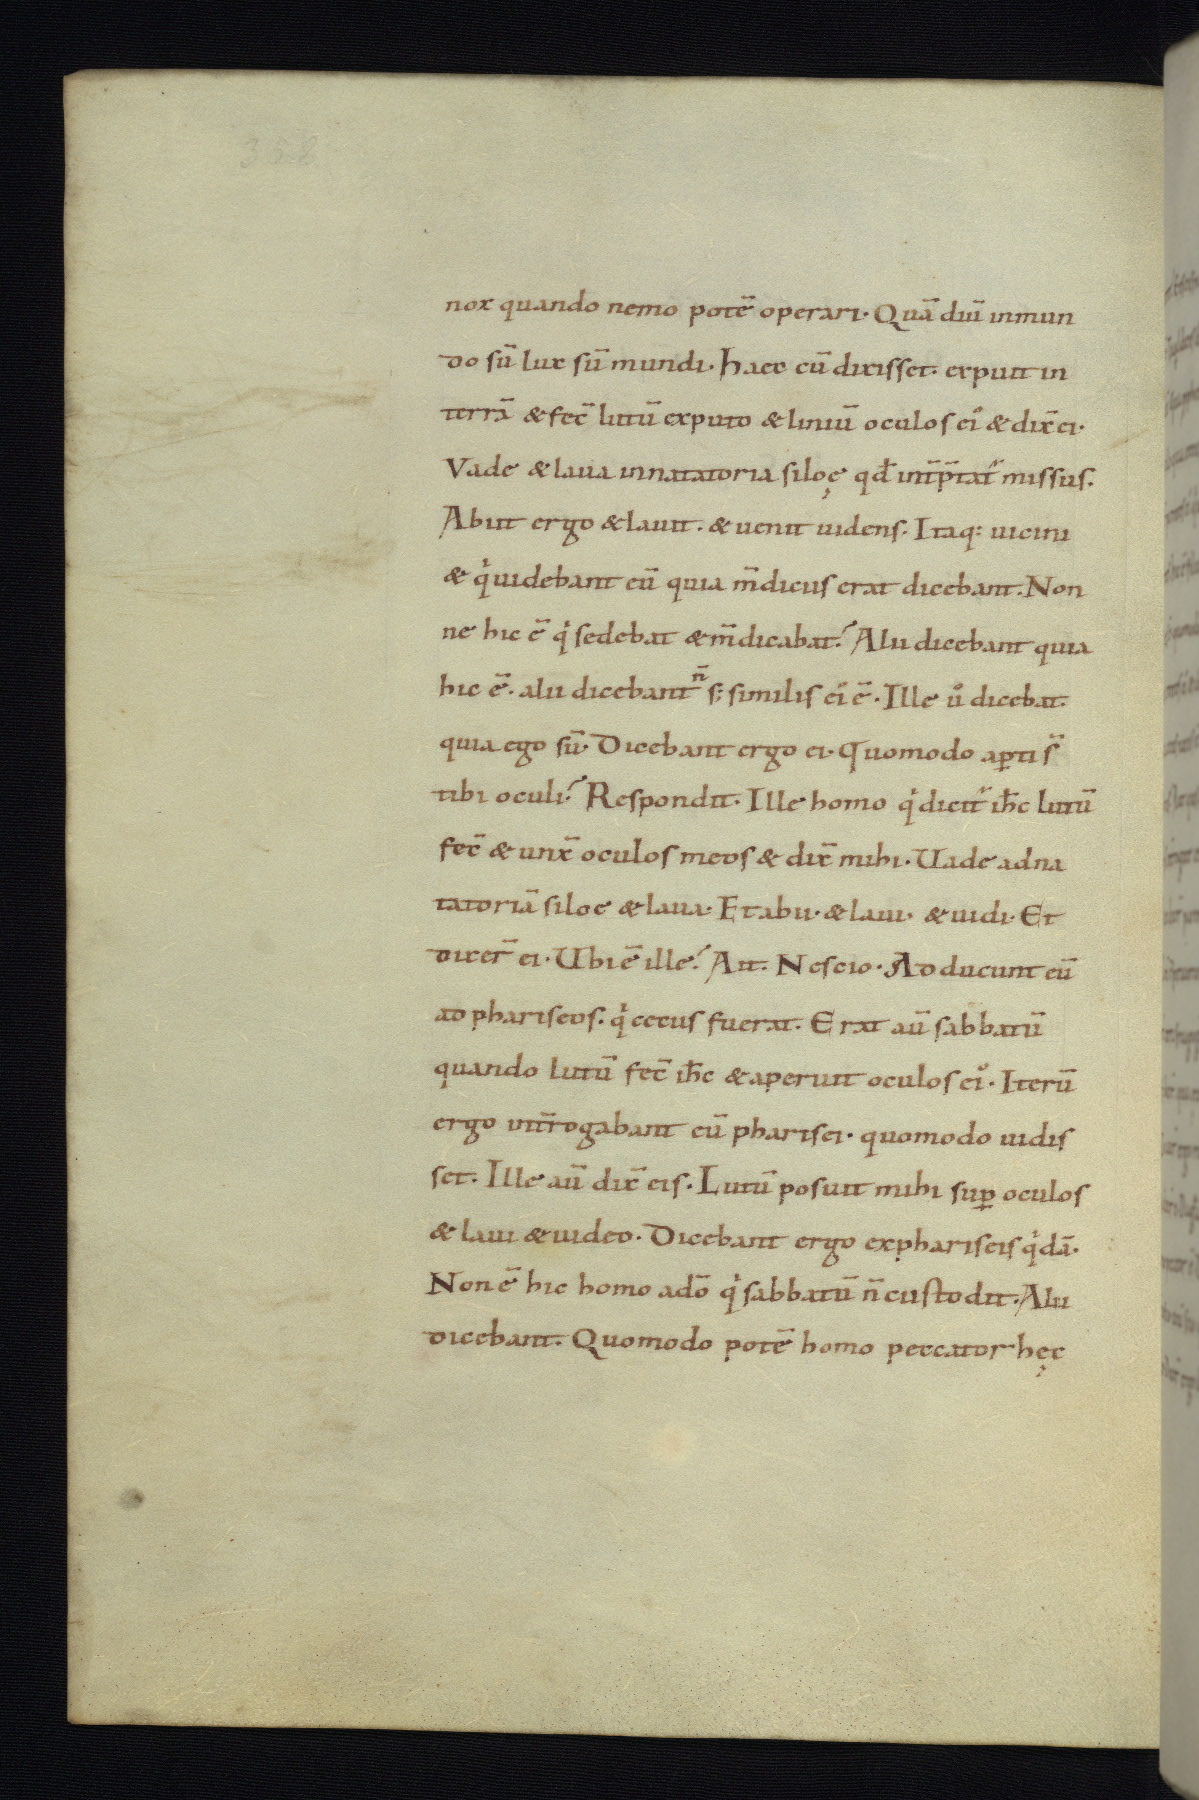 358
nox quando nemo potē operari. Quā diū inmun
do sū lux sū mundi. Haec cū dixisset. expuit in
terrā & fec̄ lutū exputo & liniuᷓ oculos ei᷒ & dix̄ ei.
Vade & laua innatatoria siloę qđ int̄p̄tat᷑ missus.
Abiit ergo & lauit. & uenit uidens. Itaq: uicini
& qͥ uidebant eū quia m̄dicus erat dicebant. Non
ne hic ē qͥ sedebat & m̄dicabat? Alii dicebant quia
hic ē. alii dicebant n̄ s; similis ei᷒ ē. Ille uͦ dicebat.
quia ego sū. Dicebant ergo ei. Quomodo apti s̄
tibi oculi? Respondit. Ille homo qͥ dicit᷑ ih̄c lutū
fec̄ & unx̄ oculos meos & dix̄ mihi. Uade adna
tatoriā siloe & laua. Et abii. & laui. & uidi. Et
dixer̄ ei. Ubi ē ille? Ait. Nescio. Adducunt eū
ad phariseos. qͥ cecus fuerat. Erat aū sabbatū
quando lutū fec̄ ih̄c & aperuit oculos ei᷒. Iterū
ergo int̄rogabant eū pharisei. quomodo uidis
set. Ille aū dix̄ eis. Lutū posuit mihi sup̱ oculos
& laui & uideo. Dicebant ergo expharisęis qͥdā.
Non ē hic homo adō qͥ sabbatū n̄ custodit. Alii
dicebant. Quomodo potē homo peccator hęc